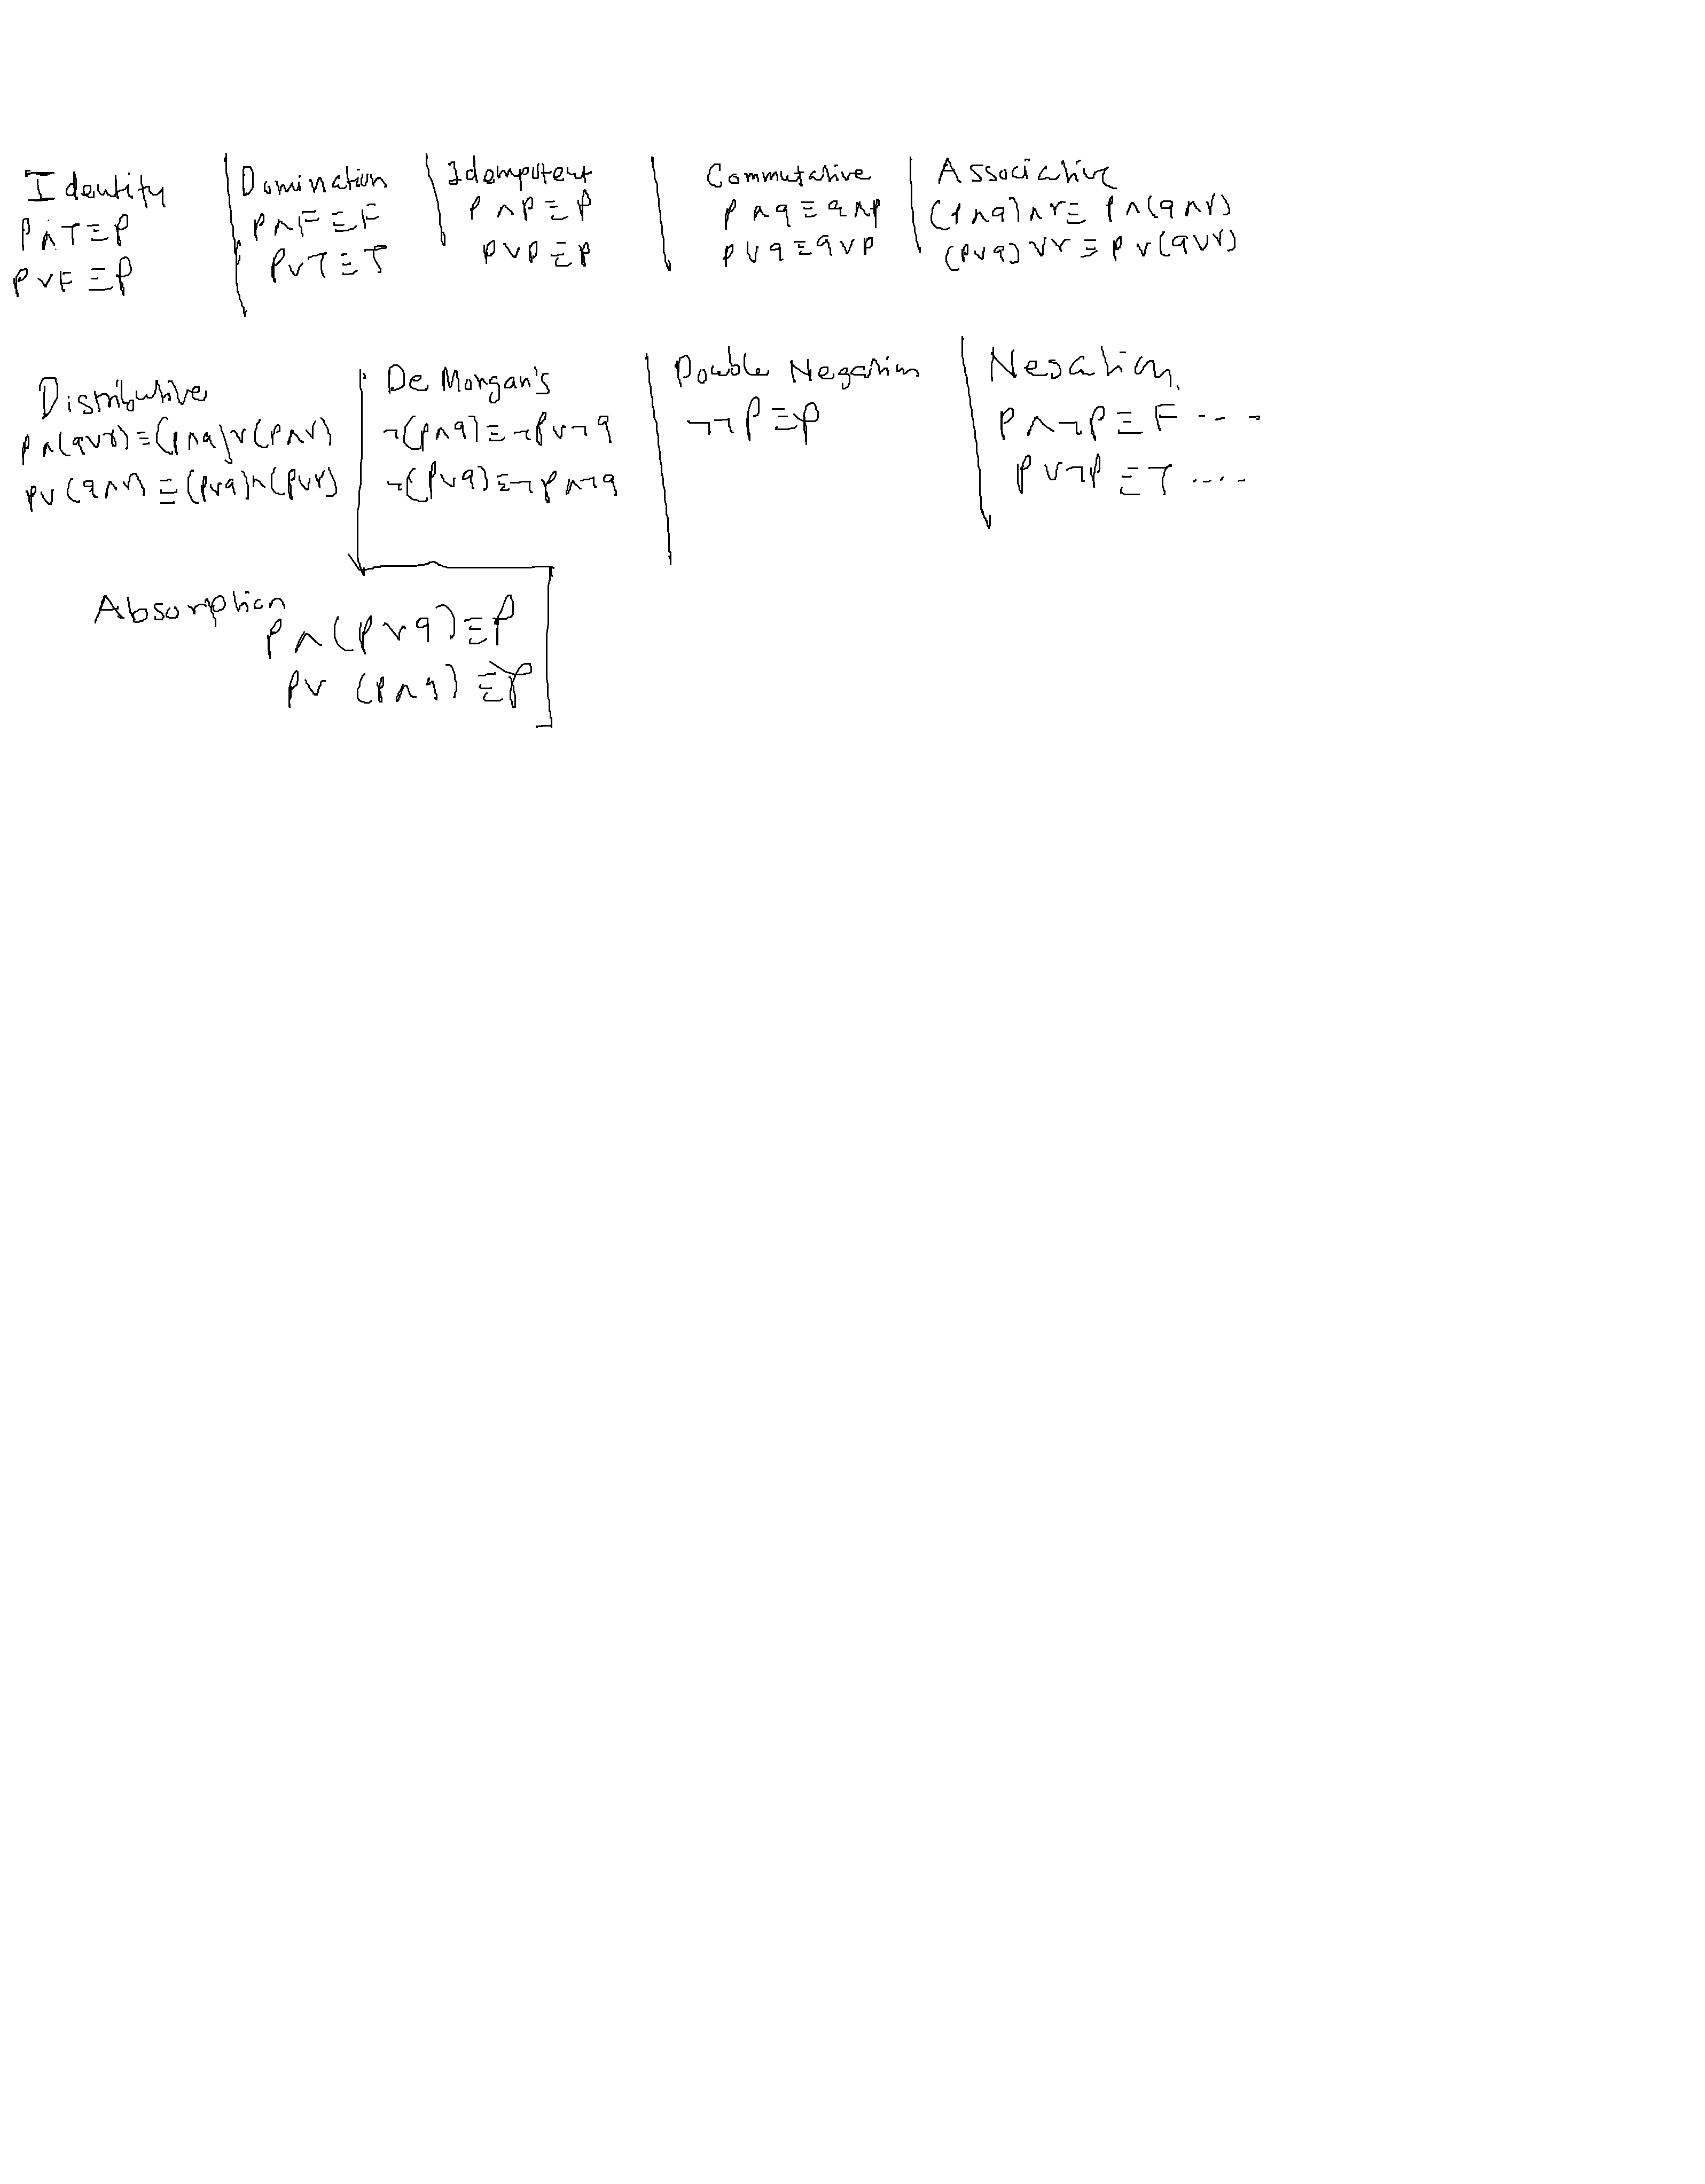 Identity
P∧T≡P
P∨F≡P
Domination
P∧F≡F
P∨T≡T
Idempotent
P∧P≡P
P∨P≡P
Commutative
P∧q≡q∧p
P∨q≡q∨p
Associative
(p∧q)∧r≡ p∧(q∧r)
(p∨q)∨r≡ p∨(q∨r)
Distributive
p∧(q∨r)≡(p∧q)∨(p∧r)
p∨(q∧r)≡(p∨q)∧(p∨r)
De Morgan's
¬(p∧q)≡¬p∨¬q
¬(p∨q)≡¬p∧¬q
Double Negation
¬¬P≡P
Negation.
P∧¬P≡F ...
P∨¬P≡T ....
Absorption
P∧(P∨q)≡P
P∨(P∧q)≡P